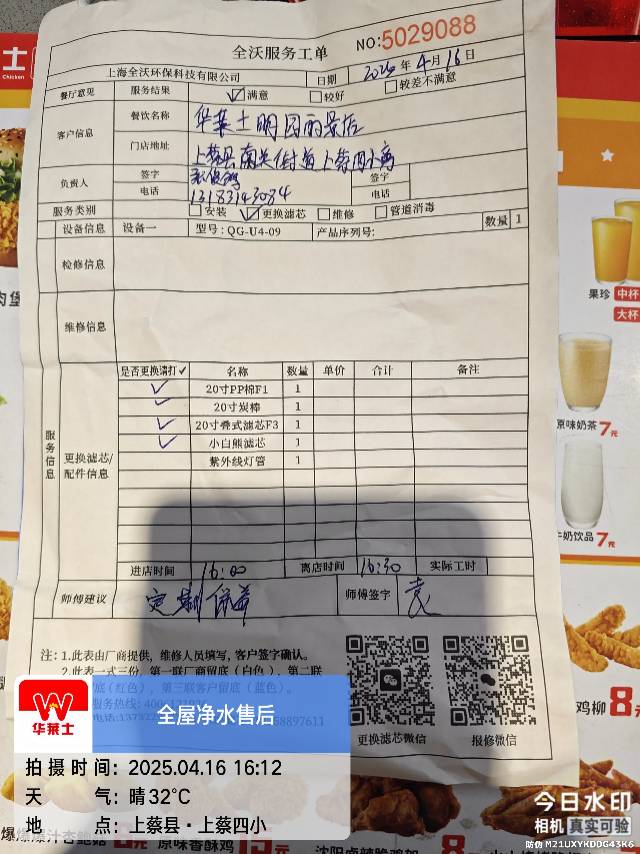 士
Chicken
全沃服务工单
NO:5029088
上海全沃环保科技有限公司
日期
4月16日
餐厅意见
服务结果
满意
较好
较差不满意
客户信息
餐饮名称
华莱士明园丽景店
门店地址
上蔡县南关街道上蔡四小离
负责人
签字
签字
电话
13183143084
电话
服务类别
安装
更换滤芯
维修
管道消毒
设备信息
设备一
型号:QG-U4-09
产品序列号:
数量
1
检修信息
维修信息
服务信息
更换滤芯/配件信息
是否更换请打✓
名称
数量
单价
合计
备注
✓
20寸PP棉F1
1
✓
20寸炭棒
1
✓
20寸叠式滤芯F3
1
✓
小白熊滤芯
1
紫外线灯管
1
进店时间
16:00
离店时间
16:30
实际工时
师傅建议
定期保养
师傅签字
袁
注: 1.此表由厂商提供，维修人员填写，客户签字确认。
2.此表一式三份，第一联厂商留底（白色）、第二联
底(红色)，第三联客户留底（蓝色）。
服务热线: 400
电话:13732
58897611
更换滤芯微信
报修微信
华莱士
全屋净水售后
拍摄时间: 2025.04.16 16:12
天 气: 晴 32°C
地 点: 上蔡县·上蔡四小
果珍
中杯
大杯
原味奶茶7元
牛奶饮品7元
鸡柳8元
肉堡
爆汁杏鲍菇
原味香酥鸡
今日水印
相机 真实可验
防伪 M21UXYKDDG43K6